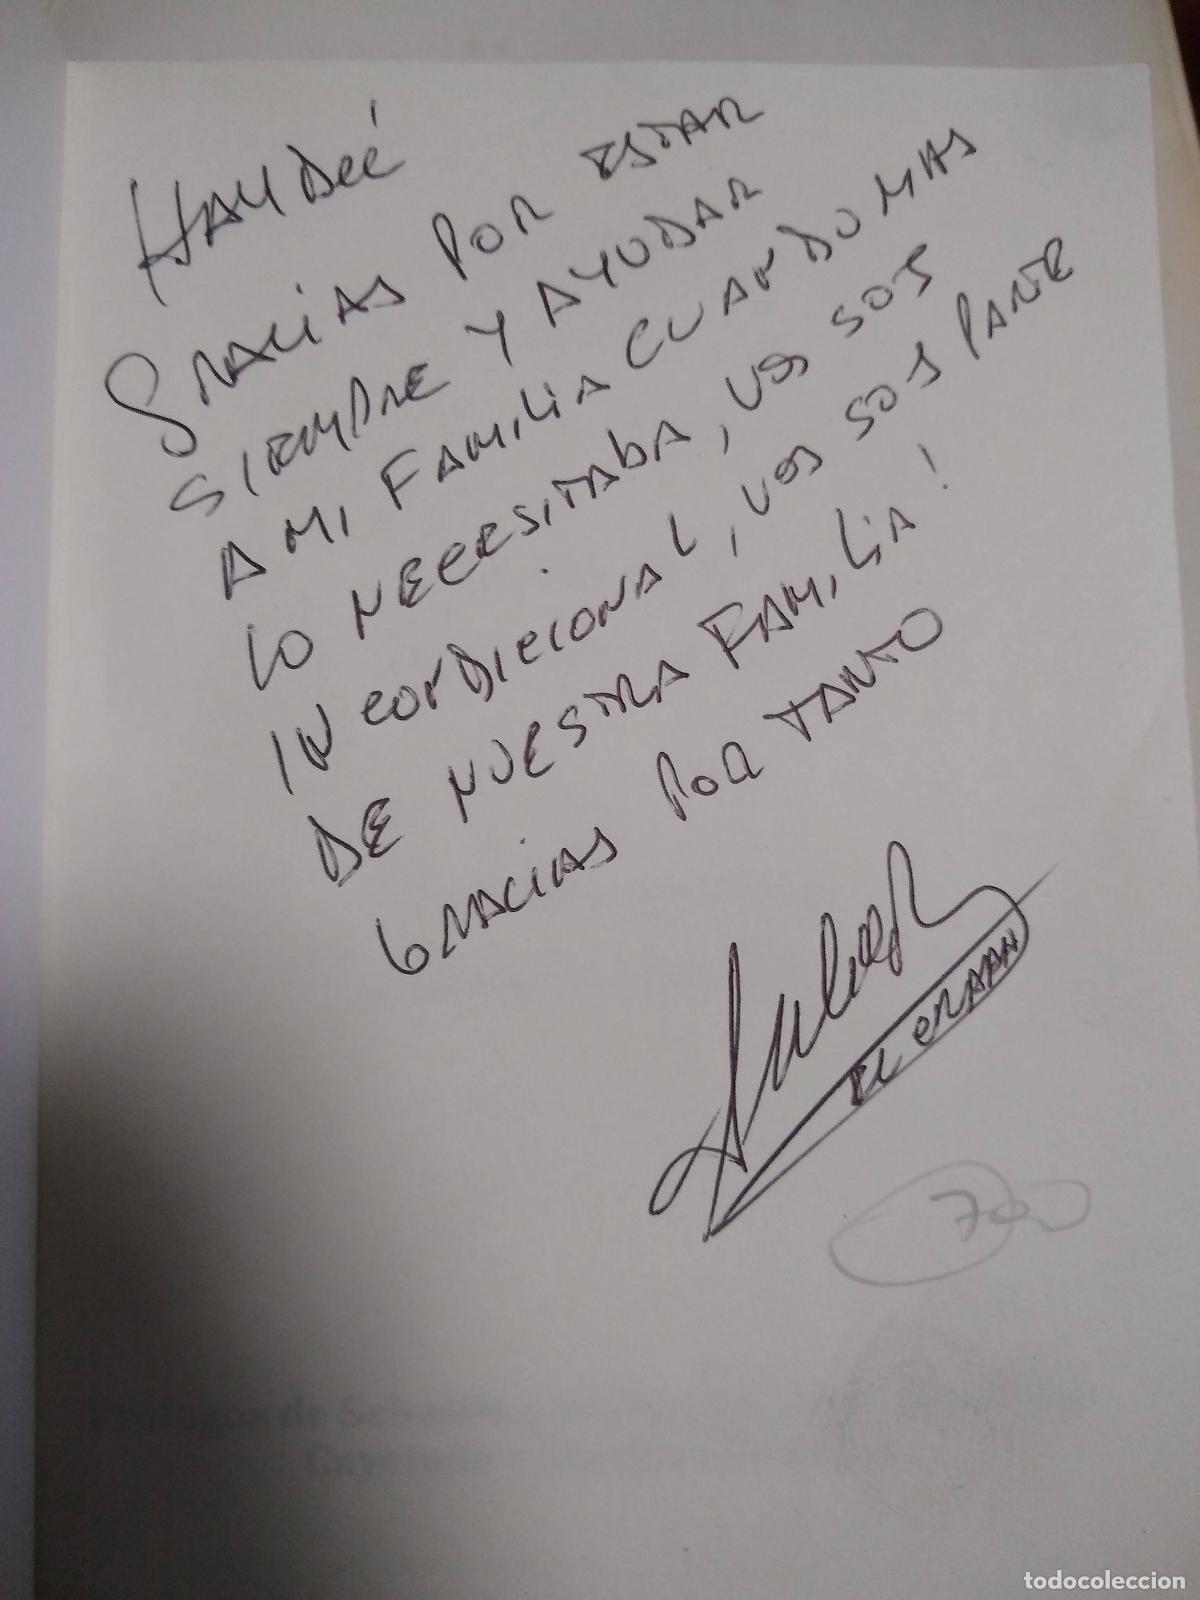 HAYDEÉ
GRACIAS POR ESTAR
SIEMPRE Y AYUDAR
A MI FAMILIA CUANDO MAS
LO NECESITABA, VOS SOS
INCONDICIONAL, VOS SOS PARTE
DE NUESTRA FAMILIA!
GRACIAS POR TANTO
EL CRAAN
700
de
todocoleccion